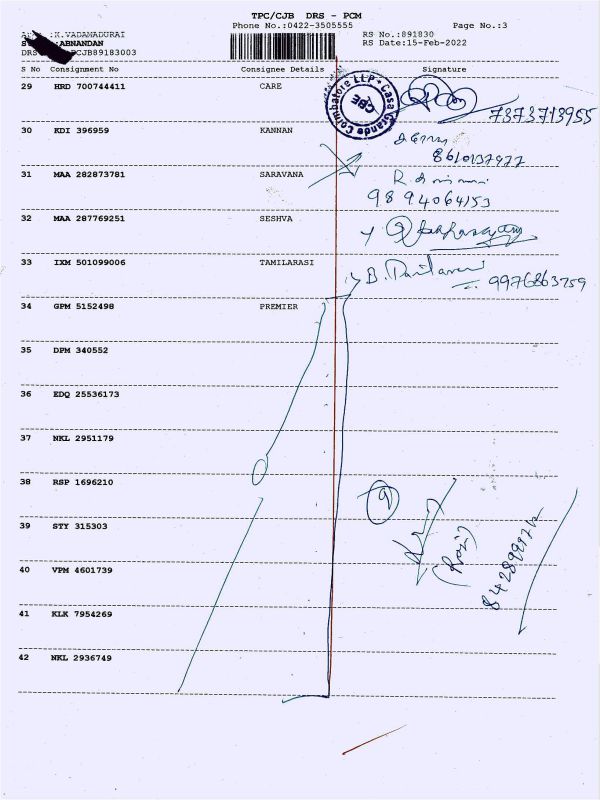 TPC/CJB DRS - PCM
Phone No.:0422-3505555 Page No.:3
:K.VADAMADURAI RS No.:891830
:ABNANDAN RS Date:15-Feb-2022
DRS CJB89183003
S No Consignment No Consignee Details Signature
29 HRD 700744411 CARE
Coimbatore LLP * Casa Grande
CBE
7373713955
30 KDI 396959 KANNAN
8610137977
31 MAA 282873781 SARAVANA
9894064153
32 MAA 287769251 SESHVA
33 IXM 501099006 TAMILARASI
B. 9976863759
34 GPM 5152498 PREMIER
35 DPM 340552
36 EDQ 25536173
37 NKL 2951179
38 RSP 1696210
9
39 STY 315303
40 VPM 4601739
41 KLK 7954269
42 NKL 2936749